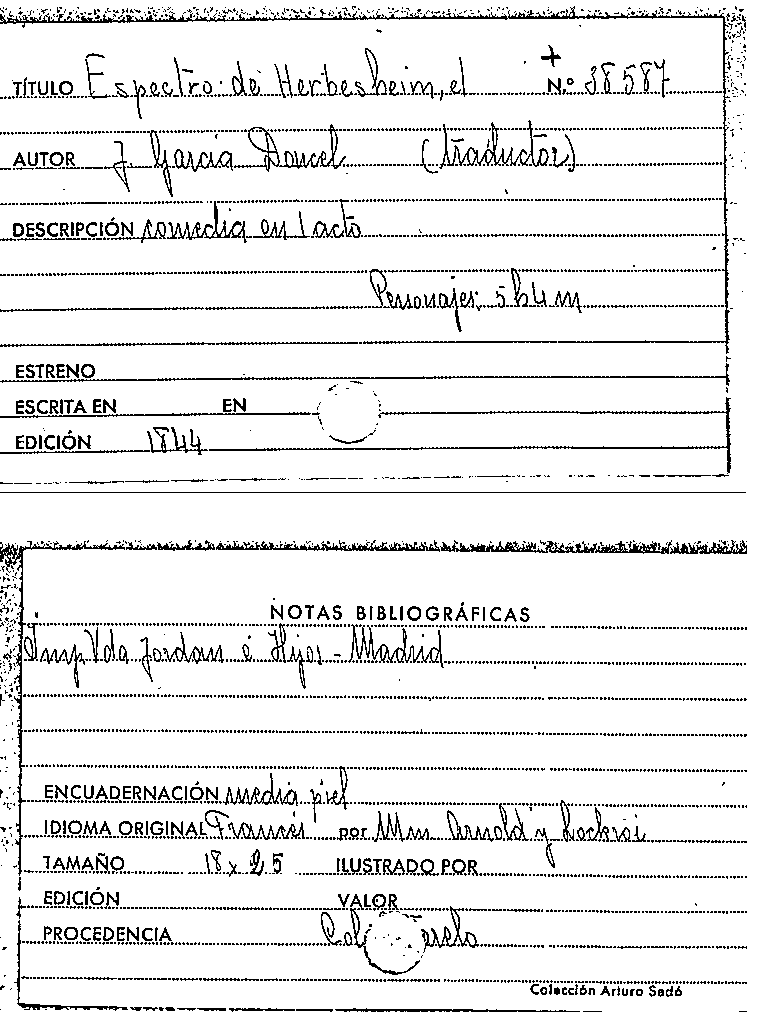 TÍTULO Espectro de Herbesheim, el + N.º 38587
AUTOR J. García Doncel (traductor)
DESCRIPCIÓN comedia en 1 acto
Personajes: 5 h 4 m
ESTRENO
ESCRITA EN EN
EDICIÓN 1844
NOTAS BIBLIOGRÁFICAS
Imp Vda Jordan é Hijos - Madrid
ENCUADERNACIÓN media piel
IDIOMA ORIGINAL Francés por Mm Arnold y Lockroi
TAMAÑO 18 x 25 ILUSTRADO POR
EDICIÓN VALOR
PROCEDENCIA
Colección Arturo Sedó